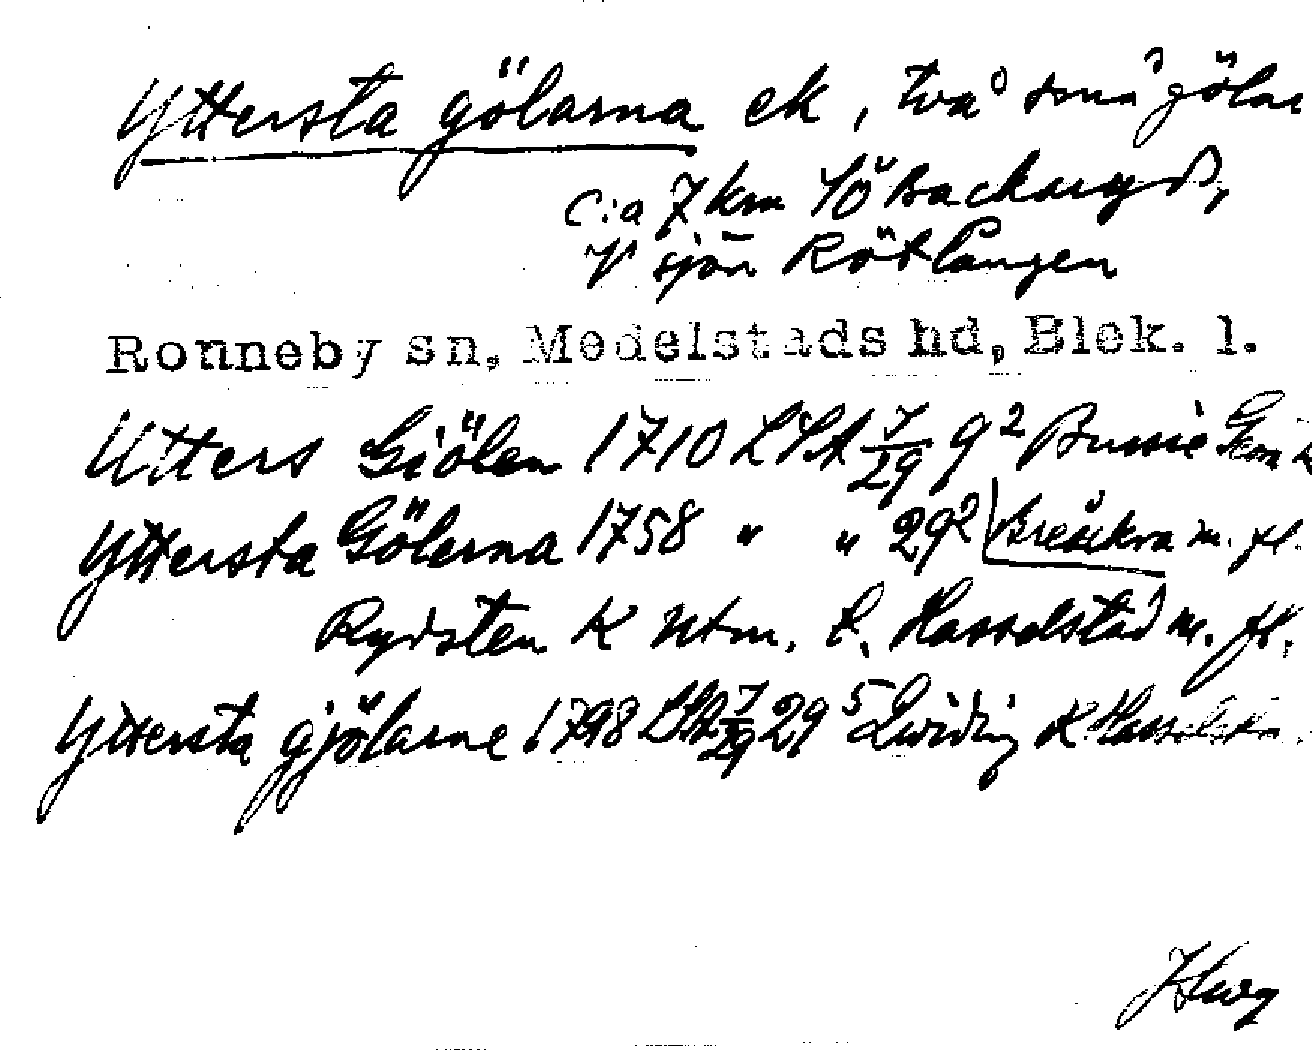 Yttersta gölarna ek, två små gölar
c:a 7 km SÖ Backaryd,
V sjön Rötlången
Ronneby sn, Medelstads hd, Blek. l.
Utters Giölen 1710 LSA 7/29 9² Bussie
Yttersta Gölerna 1758 " " 29² Bräkra m. fl.
Rydsten K Utm. t. Hasselstad m. fl.
Yttersta gjölarne 1798 LSA 7/29 29⁵ K Hasselsta